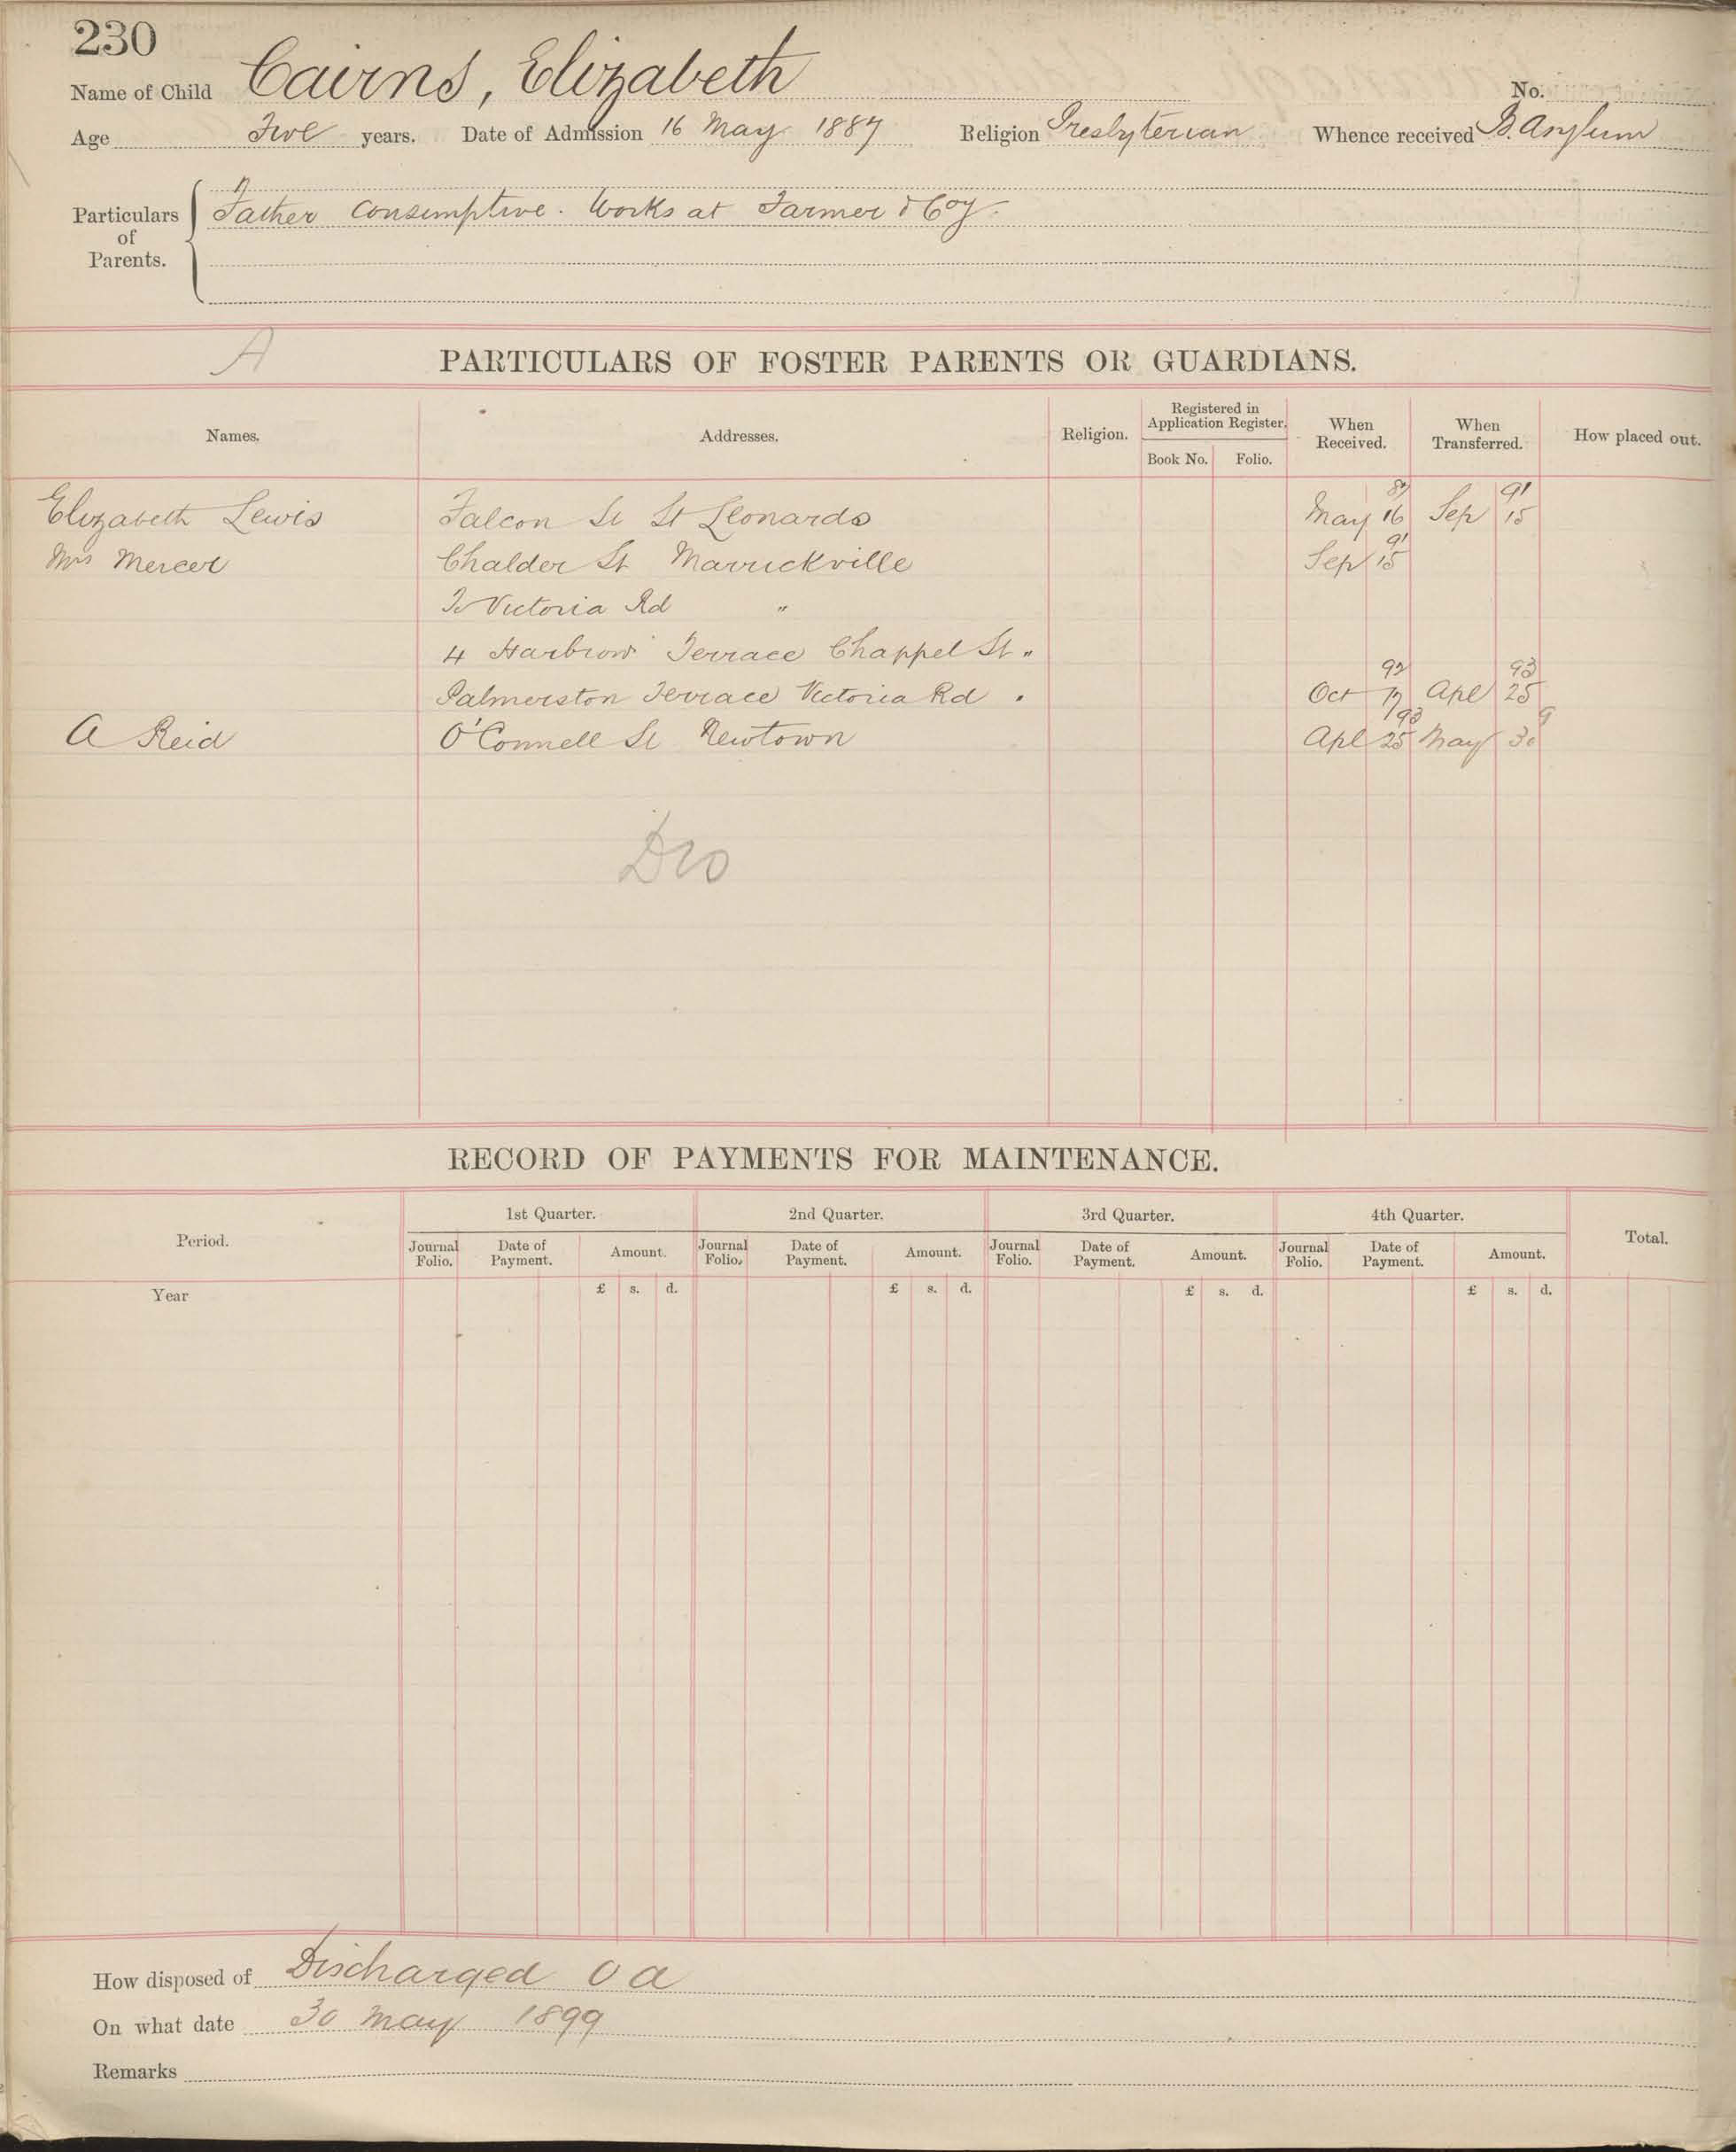 230
Name of Child Cairns, Elizabeth No.
Age Five years. Date of Admission 16 May 1887 Religion Presbyterian Whence received B. Asylum
Particulars of Parents. Father Consumptive. Works at Farmer & Coy.
A
PARTICULARS OF FOSTER PARENTS OR GUARDIANS.
Names. Addresses. Religion. Registered in Application Register. Book No. Folio. When Received. When Transferred. How placed out.
Elizabeth Lewis Falcon St St Leonards May 16 87 Sep 15 91
Mrs Mercer Chalder St Marrickville Sep 15 91
Victoria Rd "
4 Harbrow Terrace Chappel St "
Palmerston Terrace Victoria Rd " Oct 17 92 Apl 25 93
A Reid O'Connell St Newtown Apl 25 93 May 30 9
RECORD OF PAYMENTS FOR MAINTENANCE.
Period. 1st Quarter. 2nd Quarter. 3rd Quarter. 4th Quarter. Total.
Journal Folio. Date of Payment. Amount. Journal Folio. Date of Payment. Amount. Journal Folio. Date of Payment. Amount. Journal Folio. Date of Payment. Amount.
Year £ s. d. £ s. d. £ s. d. £ s. d.
How disposed of Discharged O a
On what date 30 May 1899
Remarks